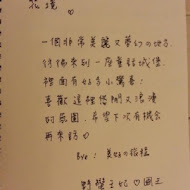 花境 ♡
一個非常美麗又夢幻的地方,
彷彿來到一座童話城堡,
裡面有好多小驚喜;
喜歡這種悠閒又浪漫
的氛圍,希望下次有機會
再來訪♡
Bye : 美好的
♡國王